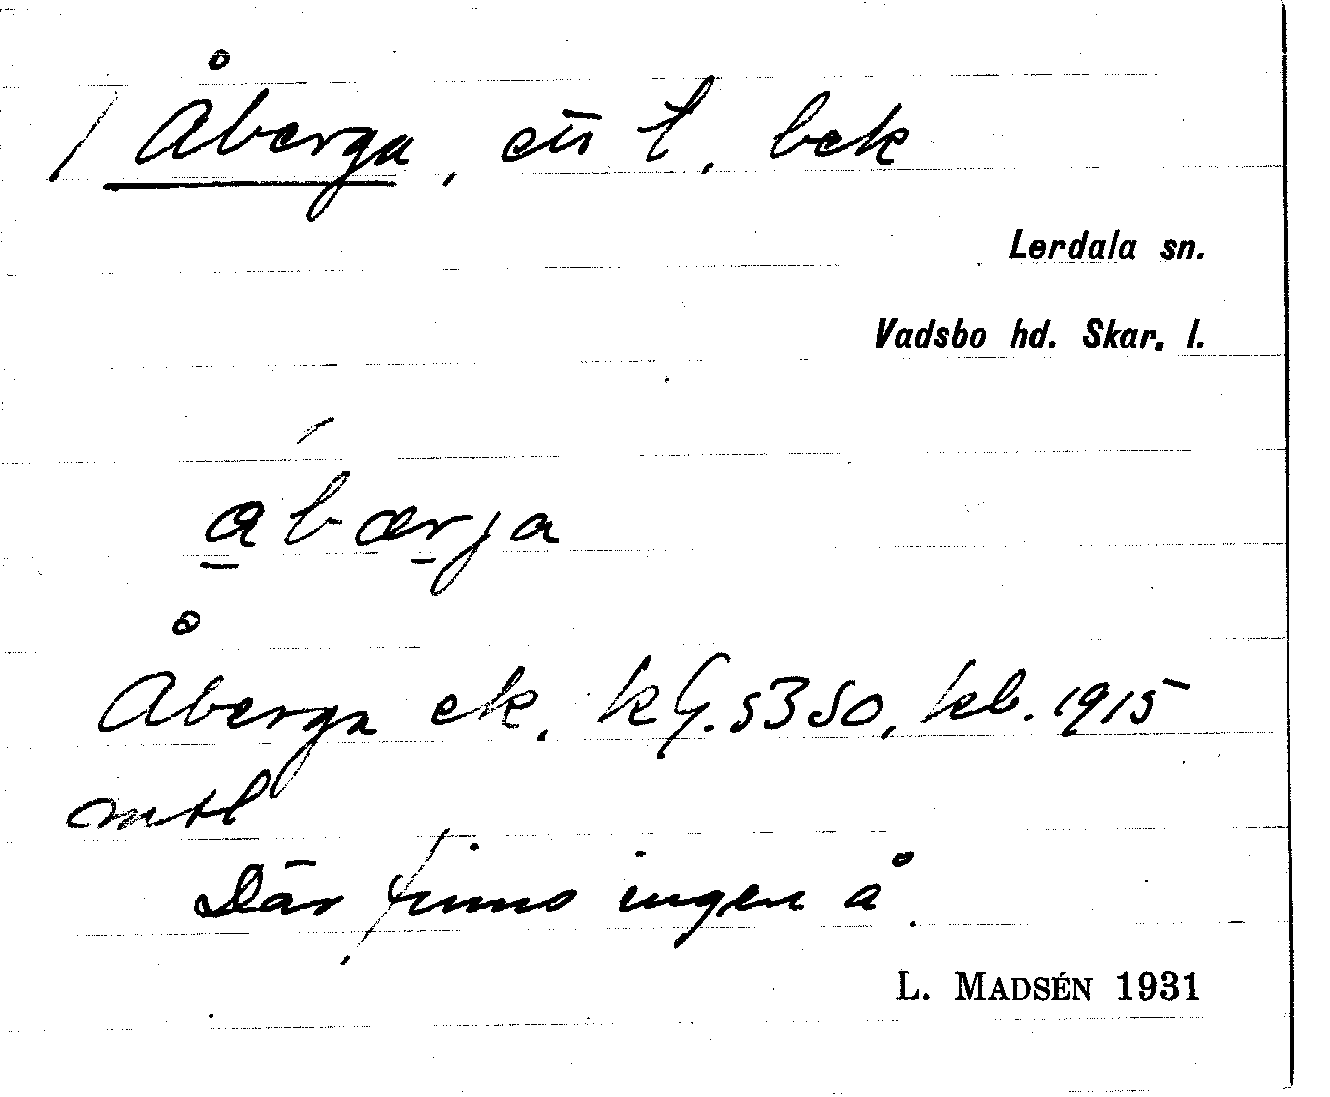 / Åberga, ett t. bek
Lerdala sn.
Vadsbo hd. Skar. l.
ábærja
Åberga ek. k G. 5350, kb. 1915
mtl
Där finns ingen å.
L. MADSÉN 1931